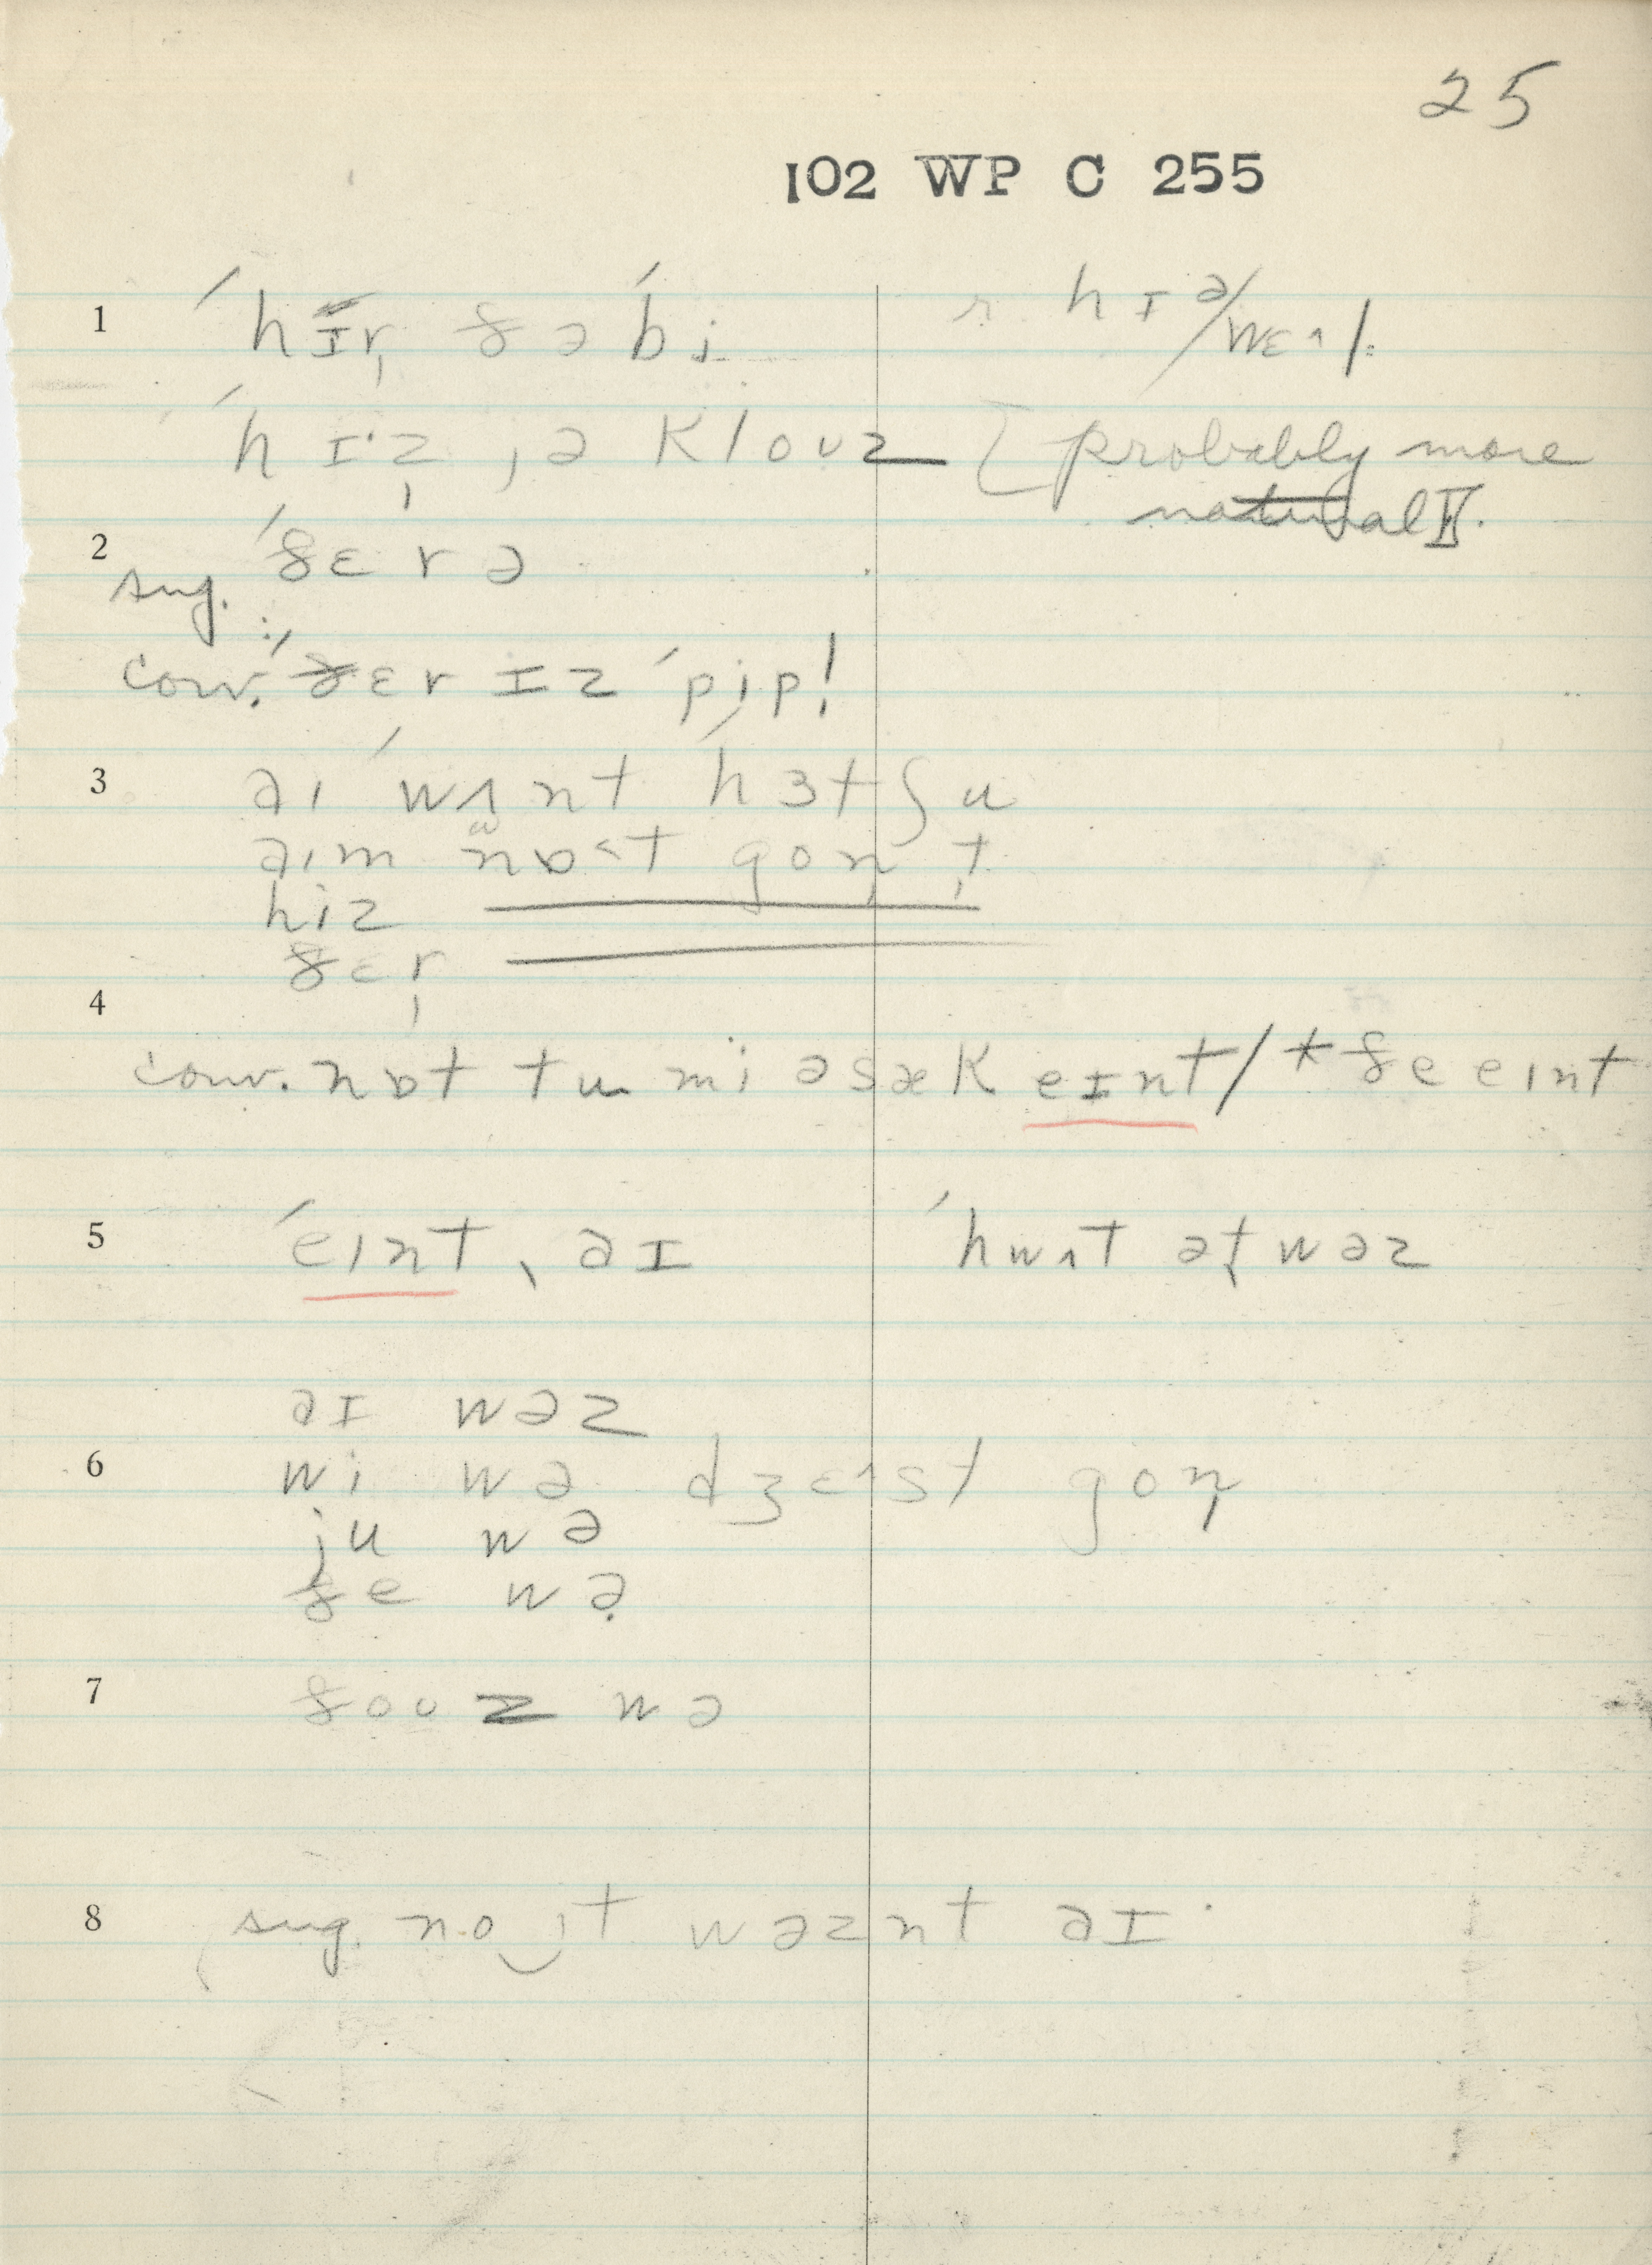 25
102 WP C 255
1 ˈhɪr̩ ðə ˈbi r. hɪə/wɛʌ/.
ˈhɪˑz̩ ˌə kloʊz [probably more
natural F.
2 ˈðɛrə
sug.
conv. ˈðɛr ɪz ˈpip!
3 aɪ ˈwʌnt ˈhɜtʃu
aɪm nɒ˂t gon̩ t̩
hiz
ðɛr̩
4
conv. nɒt tu mi əsæk eɪnt/*ðe eɪnt
5 ˈeɪnt ˎaɪ ˈhwʌt ət̬ wəz
aɪ wəz
6 wi wə dʒɛ^ɪst gon̩
ju wə
ðe wə
7 ðoʊz wə
8 sug. no‿ɪt wəznt aɪ